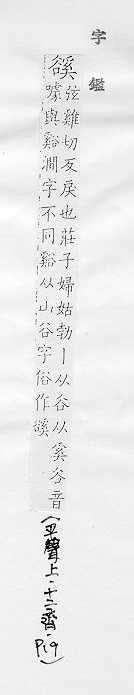 字鑑
谿弦雞切反戾也莊子婦姑勃丨从谷从奚谷音
噱與谿澗字不同谿从山谷字俗作磎
(平聲上·十二齊·P19)